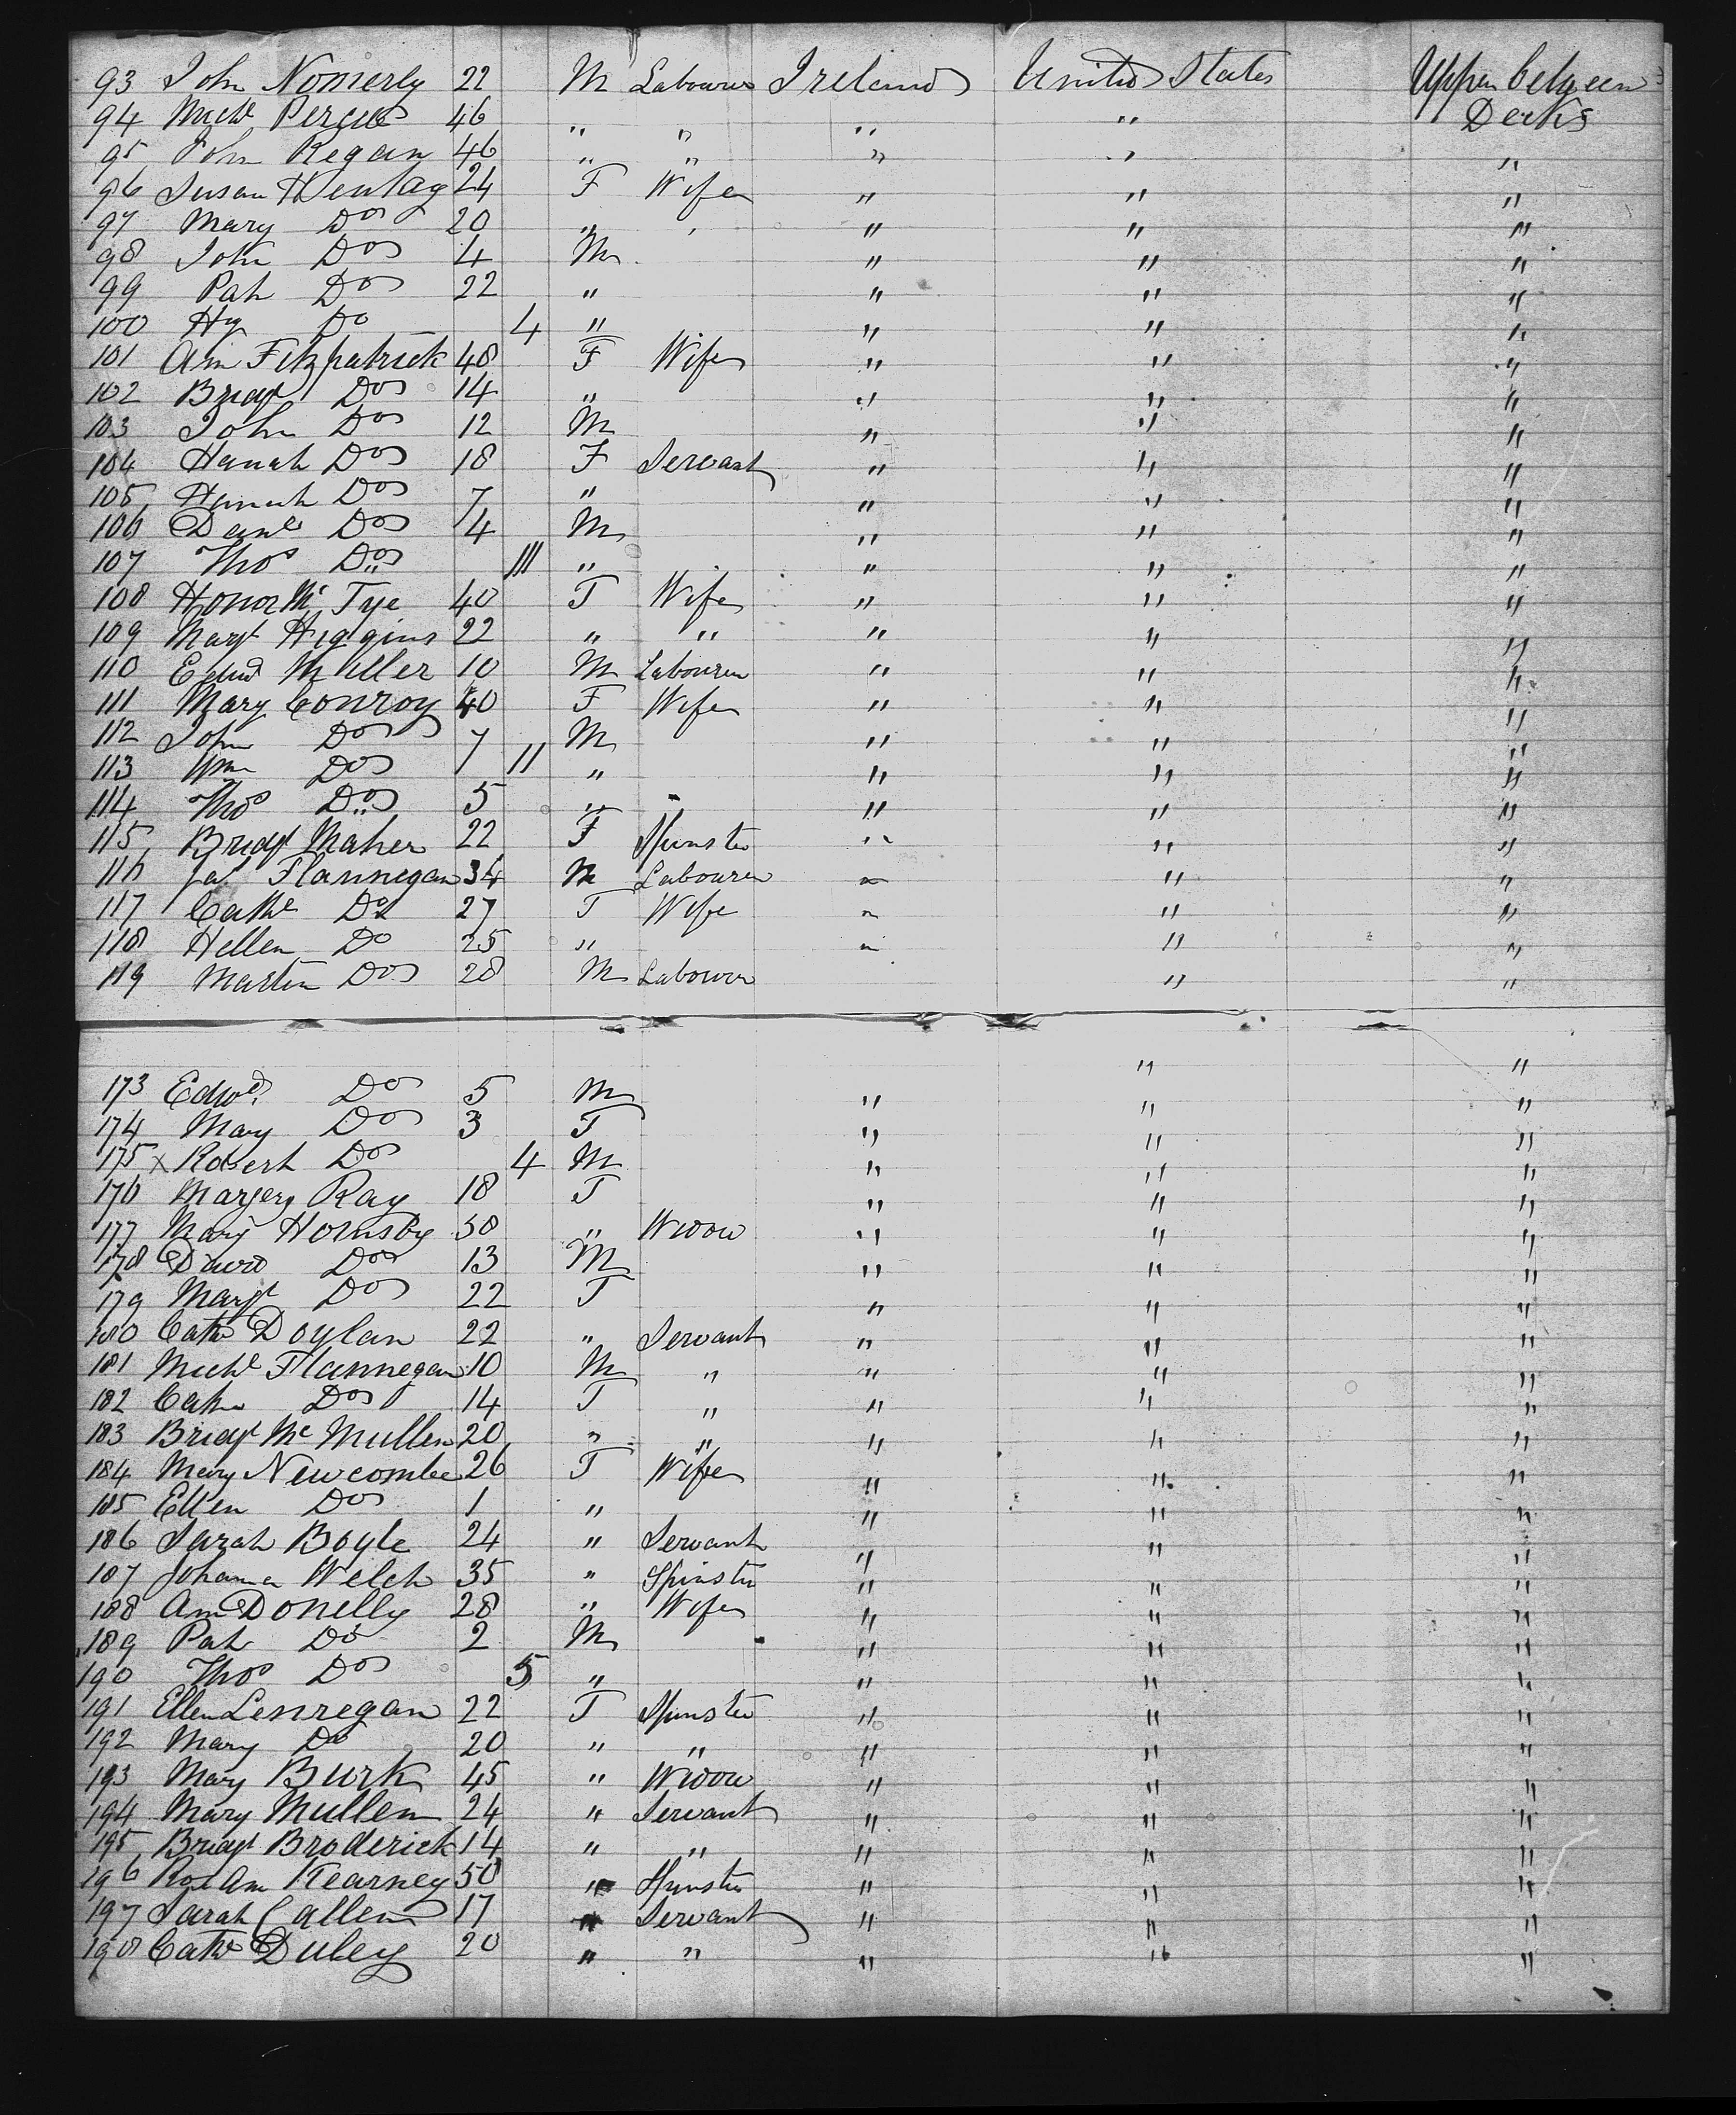 93 John Nomerly 22 M Labourer Ireland United States Upper between
94 Michl 46 " " " " Decks
95 John Regan 46 " " " " "
96 Susan 24 F Wife " " "
97 Mary Do 20 " " " " "
98 John Do 4 M " " "
99 Pat Do 22 " " " "
100 Hy Do 4 " " " "
101 Ann Fitzpatrick 48 F Wife " " "
102 Bridgt Do 14 " " " "
103 John Do 12 M " " "
104 Hanah Do 18 F Servant " " "
105 Hanah Do 7 " " " "
106 Danl Do 4 M " " "
107 Thos Do 11 " " " "
108 Honor Mc Tye 40 F Wife " " "
109 Margt Higgins 22 " " " " "
110 Edwd Miller 10 M Labourer " " "
111 Mary Conroy 40 F Wife " " "
112 John Do 7 M " " "
113 Wm Do 11 " " " "
114 Thos Do 5 " " " "
115 Bridgt Maher 22 F Spinster " " "
116 Jas Flannegan 34 M Labourer " " "
117 Cathe Do 27 F Wife " " "
118 Hellen Do 25 " " " "
119 Martin Do 28 M Labourer " "
" "
173 Edwd Do 5 M " " "
174 Mary Do 3 F " " "
175 x Robert Do 4 M " " "
176 Margery Ray 18 F " " "
177 Mary Hornsby 50 " Widow " " "
178 David Do 13 M " " "
179 Margt Do 22 F " " "
180 Cathe Doylan 22 " Servant " " "
181 Michl Flannegan 10 M " " " "
182 Cathe Do 14 F " " " "
183 Bridgt Mc Mullen 20 " " " " "
184 Mary Newcombe 26 F Wife " " "
185 Ellen Do 1 " " " "
186 Sarah Boyle 24 " Servant " " "
187 Johanna Welch 35 " Spinster " " "
188 Ann Donelly 28 " Wife " " "
189 Pat Do 2 M " " "
190 Thos Do 5 " " " "
191 Ellen Lenregan 22 F Spinster " " "
192 Mary Do 20 " " " " "
193 Mary Burk 45 " Widow " " "
194 Mary Mullen 24 " Servant " " "
195 Bridgt Broderick 14 " " " " "
196 Ann Kearney 50 " Spinster " " "
197 Sarah Callen 17 " Servant " " "
198 Cathe Duley 20 " " " " "